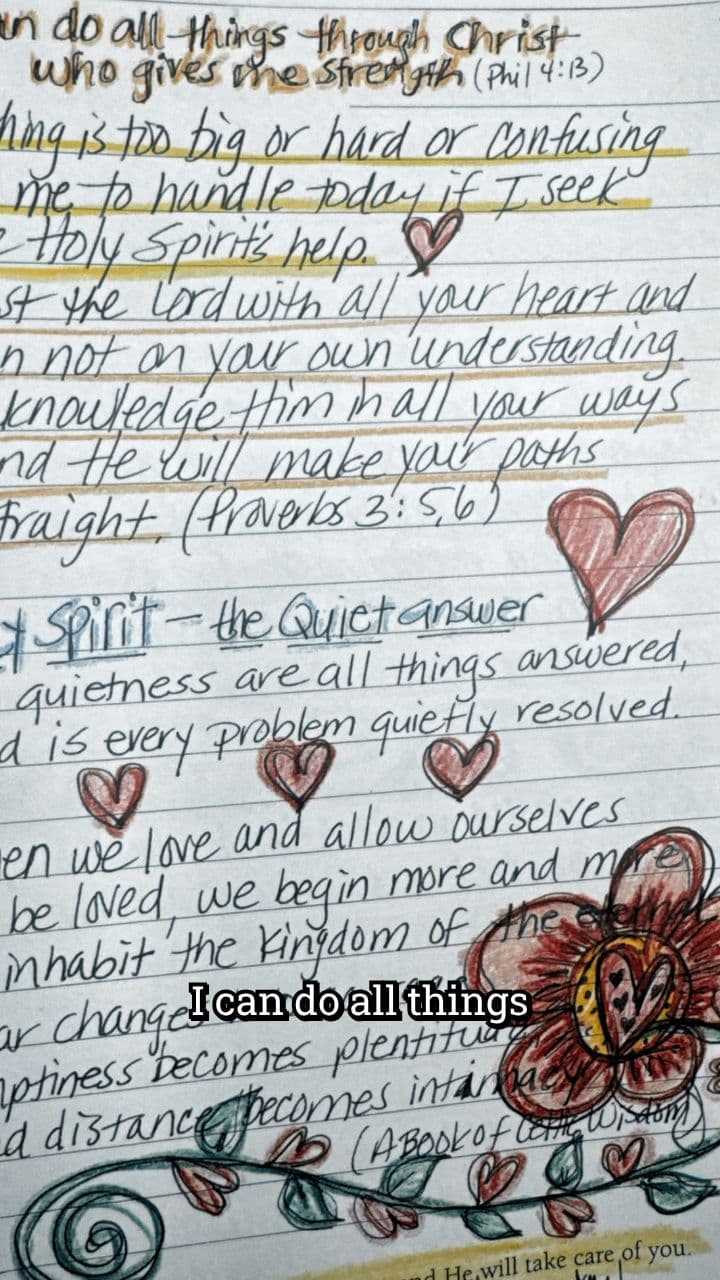 n do all things through Christ
who gives me strength (Phil 4:13)
hing is too big or hard or confusing
me to handle today if I seek
Holy Spirit's help.
st the Lord with all your heart and
n not on your own understanding.
knowledge Him in all your ways
nd He will make your paths
traight. (Proverbs 3:5,6)
y Spirit - the Quiet answer
quietness are all things answered,
d is every problem quietly resolved.
en we love and allow ourselves
be loved, we begin more and more
inhabit the kingdom of the eternal
I can do all things
ar changes
ptiness becomes plentitude
d distance becomes intimacy
(A Book of Celtic Wisdom)
d He will take care of you.